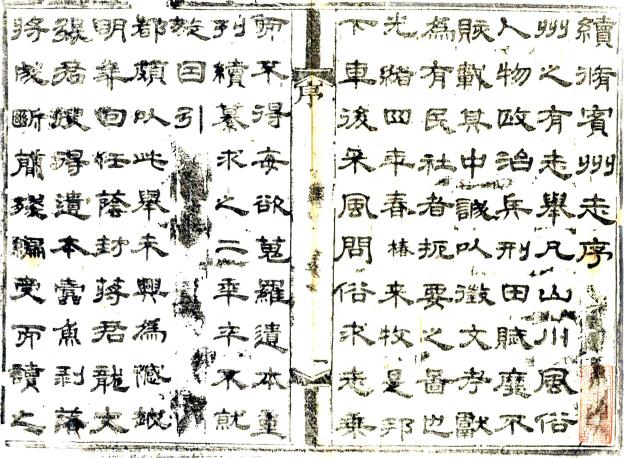 續脩賓州志序
州之有志舉凡山川風俗
人物政治兵刑田賦靡不
賅載其中誠以徵文考獻
為有民社者扼要之啚也
光緒四年春椿来牧是邦
下車後采風問俗求志乗
序
而不得每欲蒐羅遺本重
刋續纂求之二年卒不就
因引
都頗以此舉未興為憾越
明年回任蔭封蔣君龍大
張君搜得遺本蠹魚剥落
将成斷簡殘編受而讀之